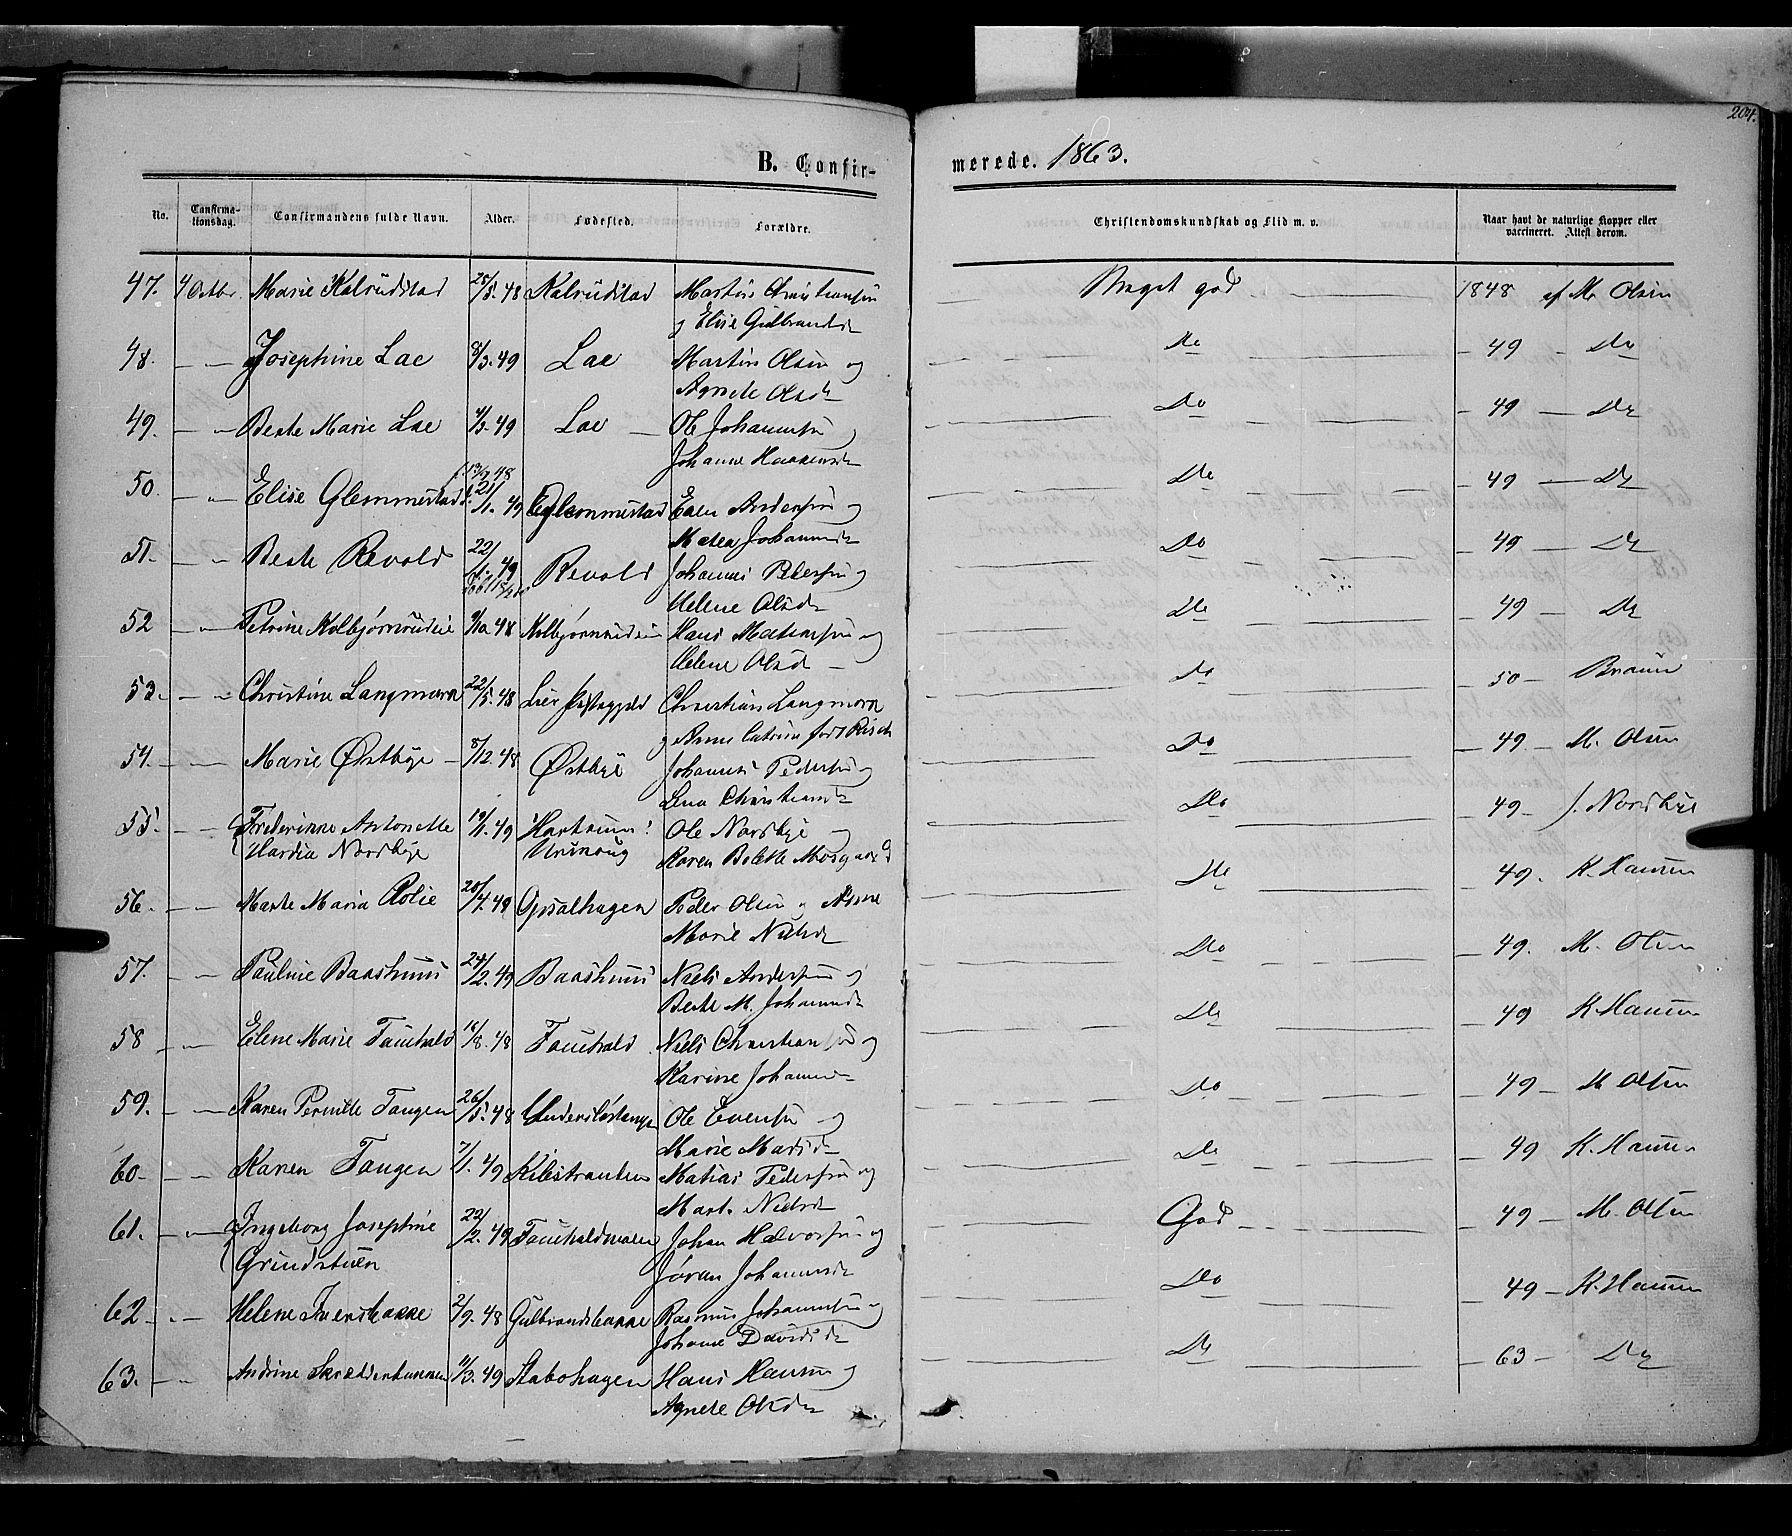 204.
B. Confirmerede. 1863.
No. Confirmationsdag. Confirmandens fulde Navn. Alder. Fødested. Forældre. Christendomskundskab og Flid m. v. Naar havt de naturlige Kopper eller vaccineret. Attest derom.
47. 4 Octbr. Marie Kalrudstad 25/5.48 Kalrudstad Martin Christiansen Meget god 1848 af M. Olsen
og Elise Gulbrandsd
48. — " Josephine Lae 8/3.49 Lae Martin Olsen og Do — 49 — Do
Agnete Olsd
49. — " Beate Marie Lae 4/3.49 Lae — Ole Johannesen og Do — 49 — Do
Johanne Haakensd
50. — " Elise Glemmestad 21/1.49 Glemmestad Even Andersen og Do — 49 — Do
Mathea Johannesd
51. — " Beate Revold 22/1.49 Revold Johannes Pedersen og Do — 49 — Do
Helene Olsd
52 — " Petrine Kolbjørnrudeie 9/10.48 Kolbjørnrudeie Hans Mathiasen og Do — 49 — Do
Helene Olsd —
53. — " Christine Langmoen 22/5.48 Lier Præstegjeld Christian Langmoen Do — 50 — Braun
og Anne Catrine født Risch
54. — — Marie Østbye — 8/12.48 Østbye Johannes Pedersen og Do — 49 — M. Olsen
Lena Christiansd
55. — " Frederikke Antonette 19/1.49 Hartsuus i Ole Nordbye og Do — 49 — J. Nordbye
Hardia Nordbye Karen Bolette Mosgaard
56. — — Marte Maria Rolie 20/4.49 Opsalhagen Peder Olsen og Anne Do — 49. K. Hansen
Marie Nielsd
57. — — Pauline Baashuus 24/2.49 Baashuus Niels Andersen og Do — 49. M. Olsen
Beate M. Johannesd
58 — — Elene Marie Fauchald 18/8.48 Fauchald Niels Christiansen og Do — 49 K. Hansen
Karine Johannesd
59. — — Karen Pernille Tangen 26/5.48 Ole Evensen og Do — 49 — M. Olsen
Marie Madsd
60. — — Karen Tangen 7/1.49 Kilestranden Mathias Pedersen og Do — 49 K. Hansen
Mart. Nielsd
61. — " — Ingeborg Josephine 22/2.49 Fauchaldmoen Johan Halvorsen og God — 49 — M. Olsen
Grindstuen Jøran Johannesd
62. — " — Helene Iversbakke 2/9.48 Gulbrandsbakke Rasmus Johannesen og Do — 49 K. Hansen
Johanne Davidsd
63. — " Andrine Skrædderbakken 11/3.49 Stabohagen Hans Hansen og Do — 63 — Do
Agnete Olsd